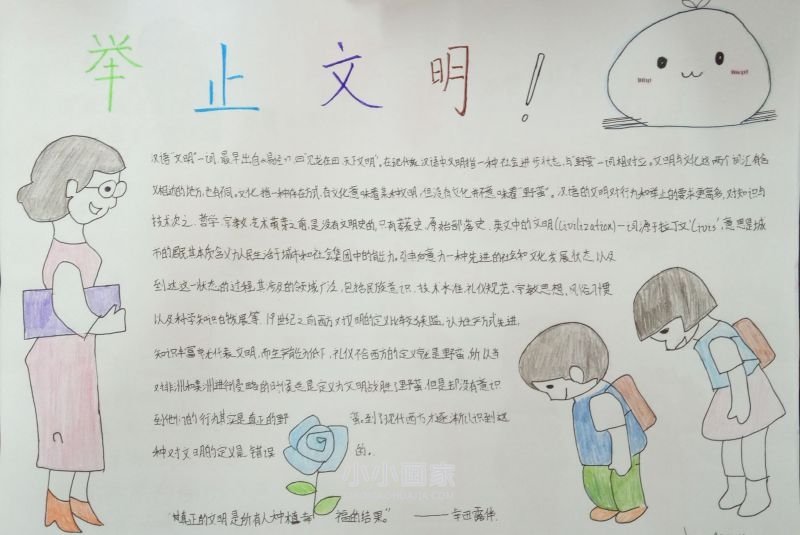 举止文明!
汉语"文明"一词,最早出自《易经》,曰"见龙在田、天下文明"。在现代汉语中文明指一种社会进步状态,与"野蛮"一词相对立。文明与文化这两个词汇有含
义相近的地方,也有不同。文化指一种存在方式,有文化意味着某种文明,但没有文化并不意味着"野蛮"。汉语的文明对行为和举止的要求更高,对知识与
技术次之。哲学、宗教、艺术萌芽之前,是没有文明史的,只有莽荒史,原始部落史。英文中的文明(Civilization)一词源于拉丁文"Civis",意思是城
市的居民,其本质含义为人民生活于城市和社会集团中的能力。引申后意为一种先进的社会和文化发展状态,以及
到达这一状态的过程,其涉及的领域广泛,包括民族意识、技术水准、礼仪规范、宗教思想,风俗习惯
以及科学知识的发展等。19世纪之前西方对文明的定义比较狭隘。认为生产方式先进,
知识丰富即代表文明,而生产能力低下,礼仪不合西方的定义就是野蛮,所以当
对非洲和美洲进行侵略的时候总是定义为文明战胜了野蛮,但是却没有意识
到他们的行为其实是真正的野蛮,到了现代西方才逐渐认识到这
种对文明的定义是错误的。
小小画家
XIAOXIAOHUAJIA.COM
"真正的文明是所有人种植幸福的结果。"